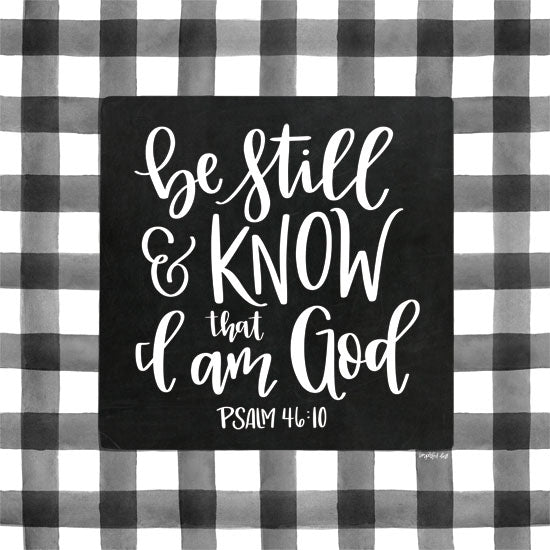 be still
& KNOW
that
I am God
PSALM 46:10